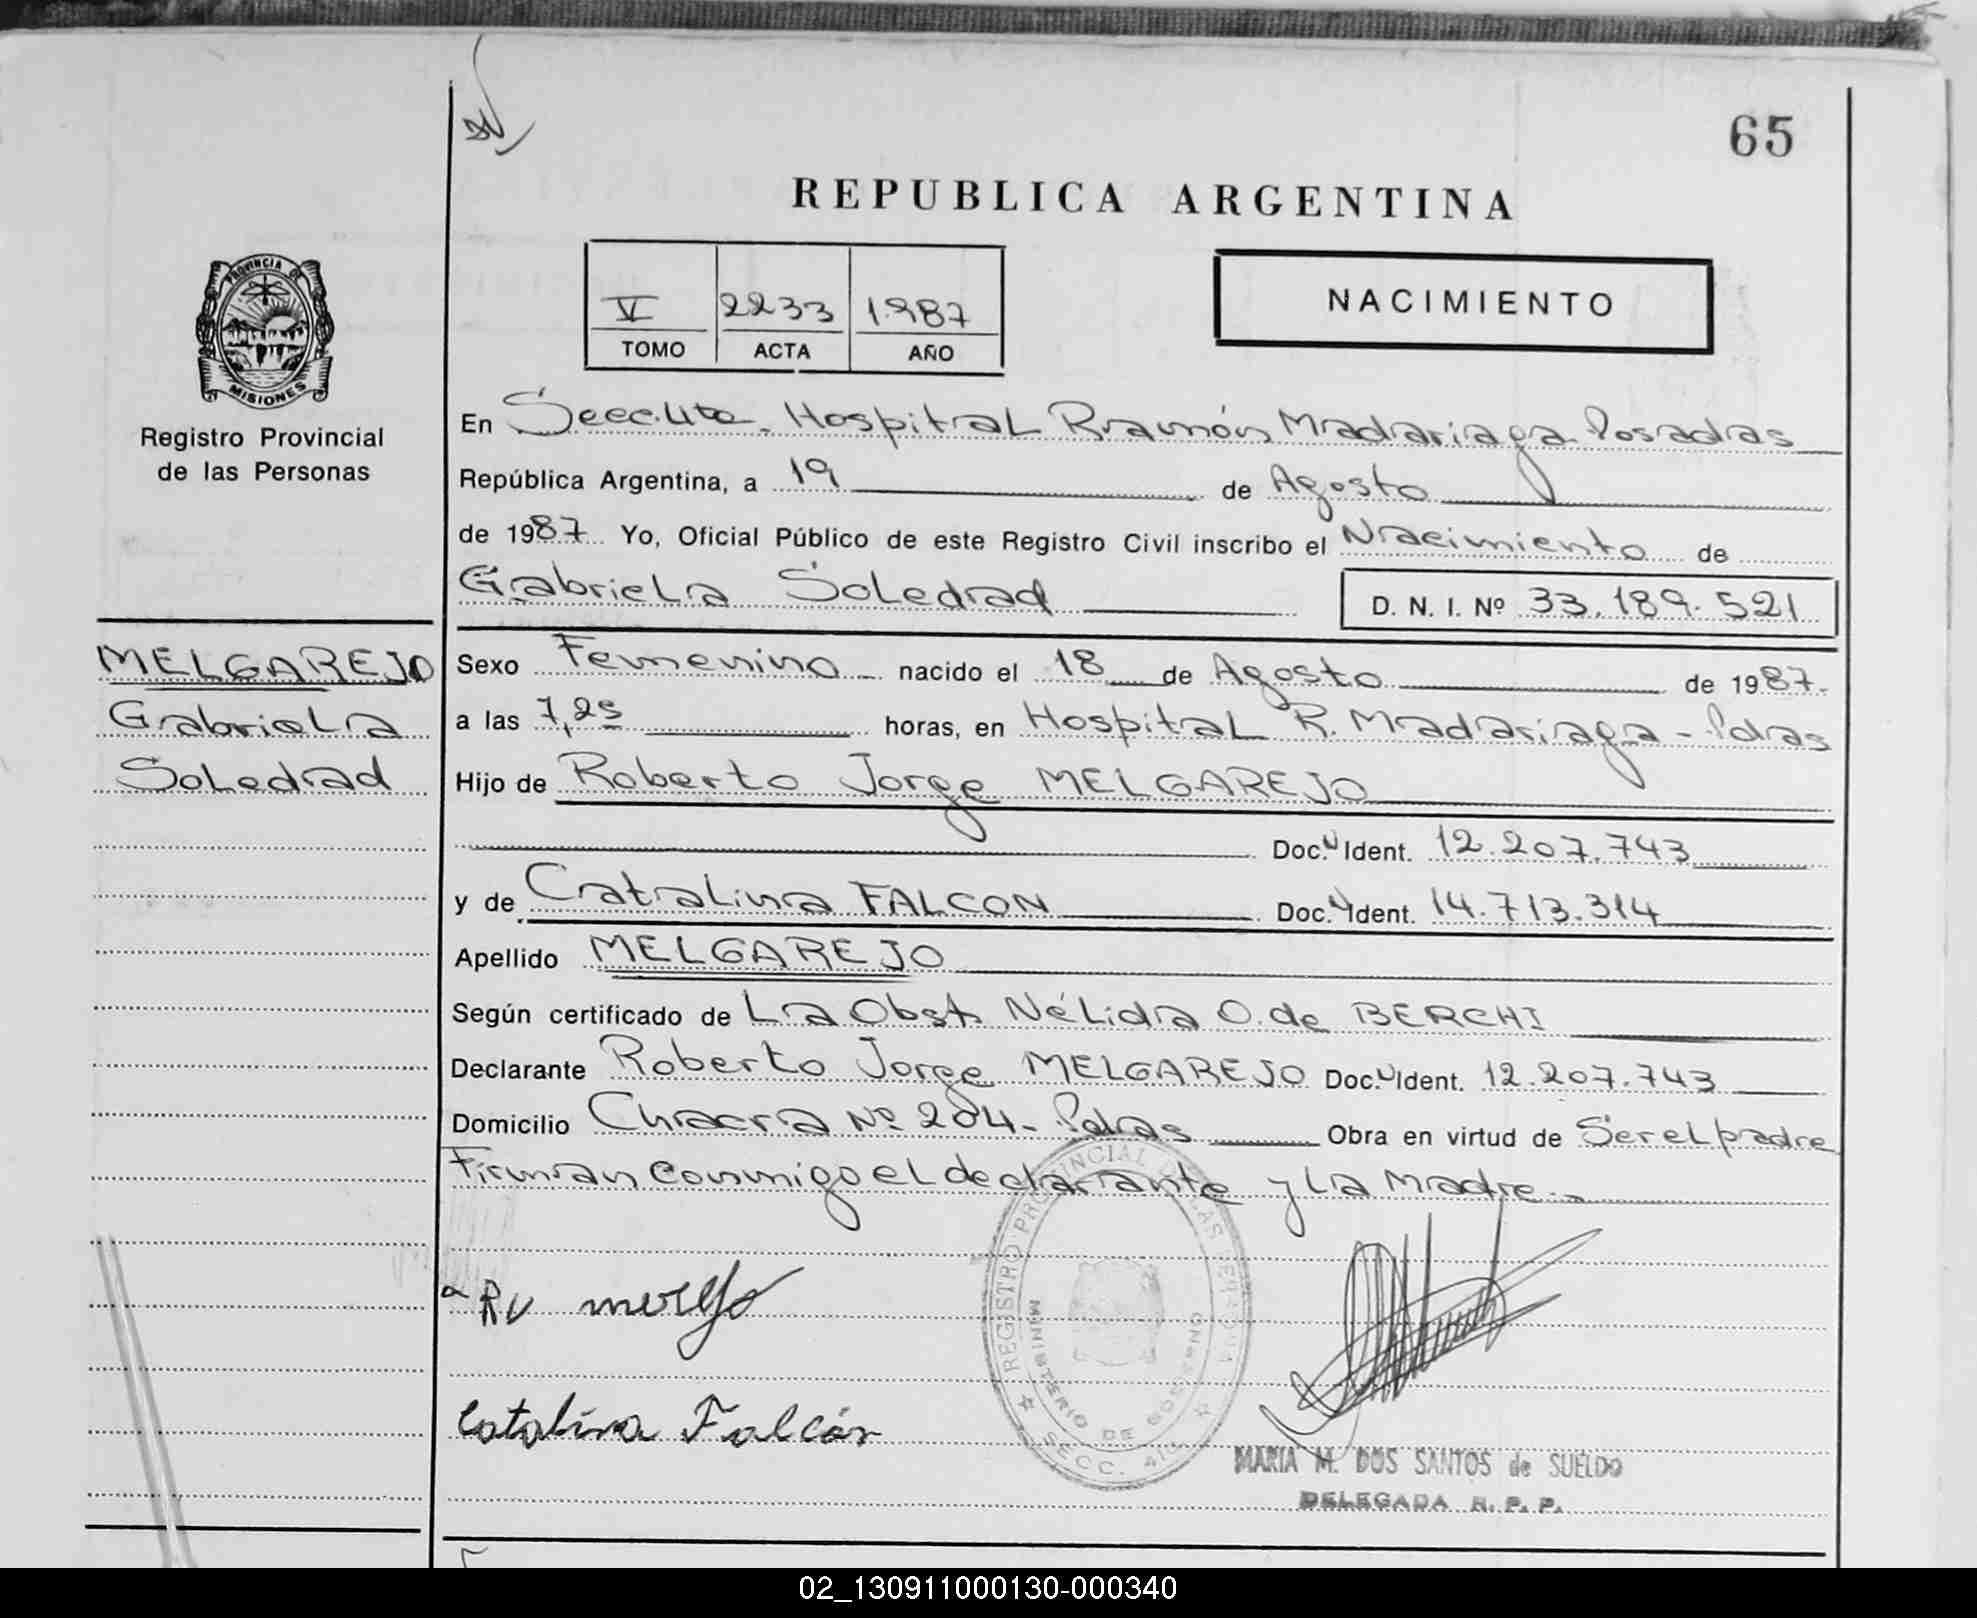 65
REPUBLICA ARGENTINA
PROVINCIA DE
MISIONES
Registro Provincial
de las Personas
V 2233 1987
TOMO ACTA AÑO
NACIMIENTO
En Secc. 4ta. Hospital Ramón Madariaga Posadas
República Argentina, a 19 de Agosto
de 1987 Yo, Oficial Público de este Registro Civil inscribo el Nacimiento de
Gabriela Soledad D. N. I. Nº 33.189.521
MELGAREJO
Gabriela
Soledad
Sexo Femenino nacido el 18 de Agosto de 1987.
a las 7,25 horas, en Hospital R. Madariaga - Pdas
Hijo de Roberto Jorge MELGAREJO
Doc. Ident. 12.207.743
y de Catalina FALCON Doc. Ident. 14.713.314
Apellido MELGAREJO
Según certificado de La Obst. Nélida O. de BERCHI
Declarante Roberto Jorge MELGAREJO Doc. Ident. 12.207.743
Domicilio Chacra Nº 204 - Pdas Obra en virtud de Ser el padre
Firman conmigo el declarante y la madre.-
Catalina Falcón
REGISTRO PROVINCIAL DE LAS PERSONAS
MINISTERIO DE GOBIERNO
SECC. 4ta
MARIA M. DOS SANTOS de SUELDO
DELEGADA R. P. P.
02_130911000130-000340